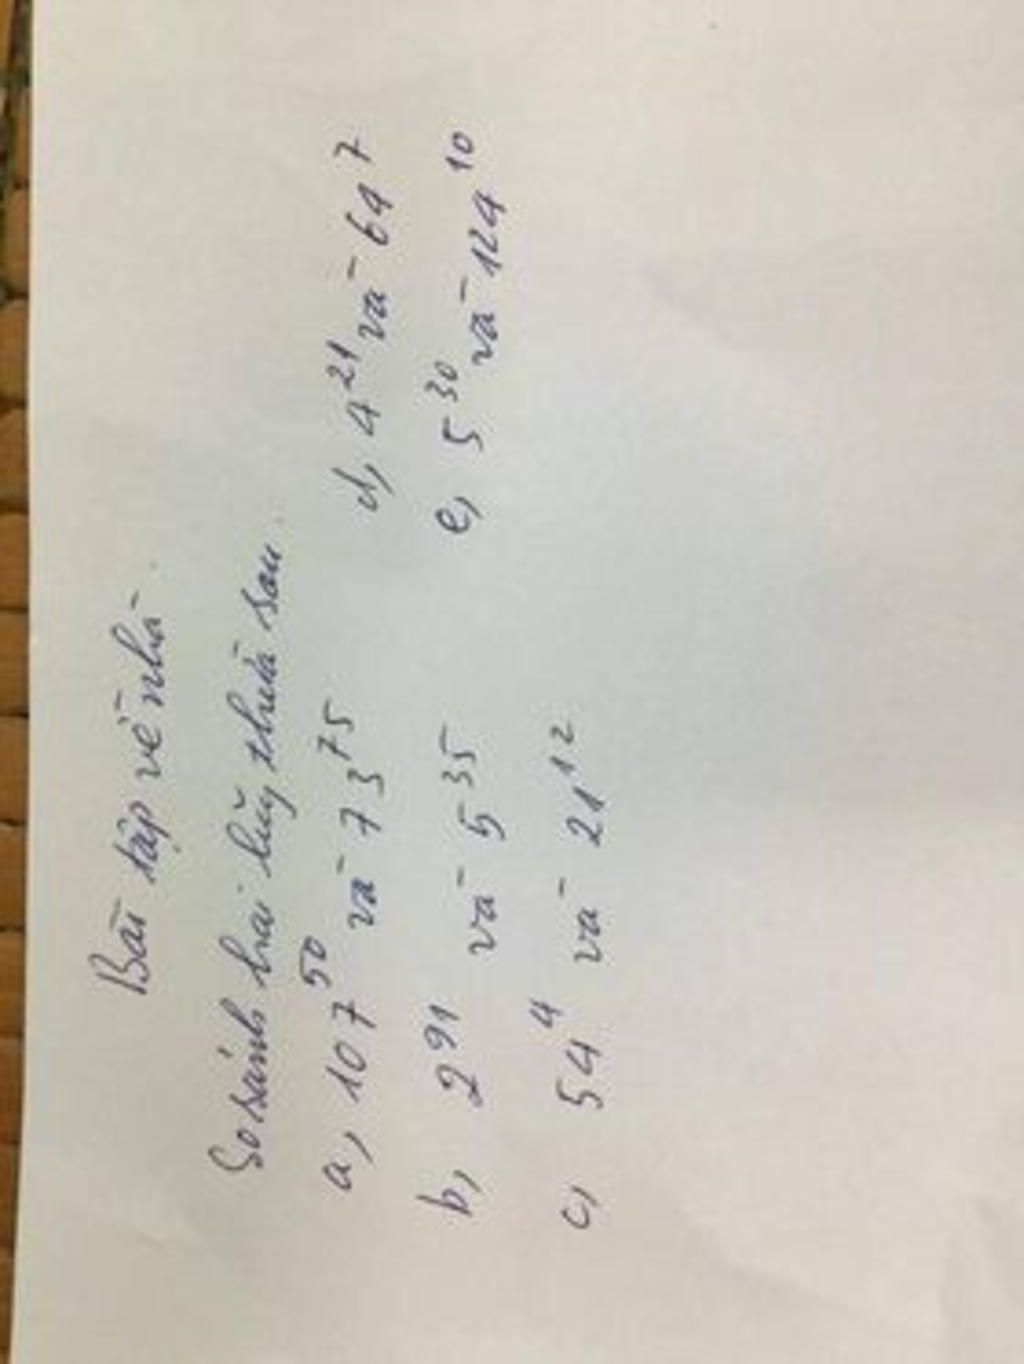 Bài tập về nhà
So sánh hai lũy thừa sau.
a, 107^50 và 73^75
b, 2^91 và 5^35
c, 54^4 và 21^12
d, 4^21 và 64^7
e, 5^30 và 124^10